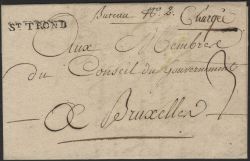 Bureau N° 2. Chargée
ST TROND
Aux Membres
du Conseil du Gouvernement
A Bruxelles